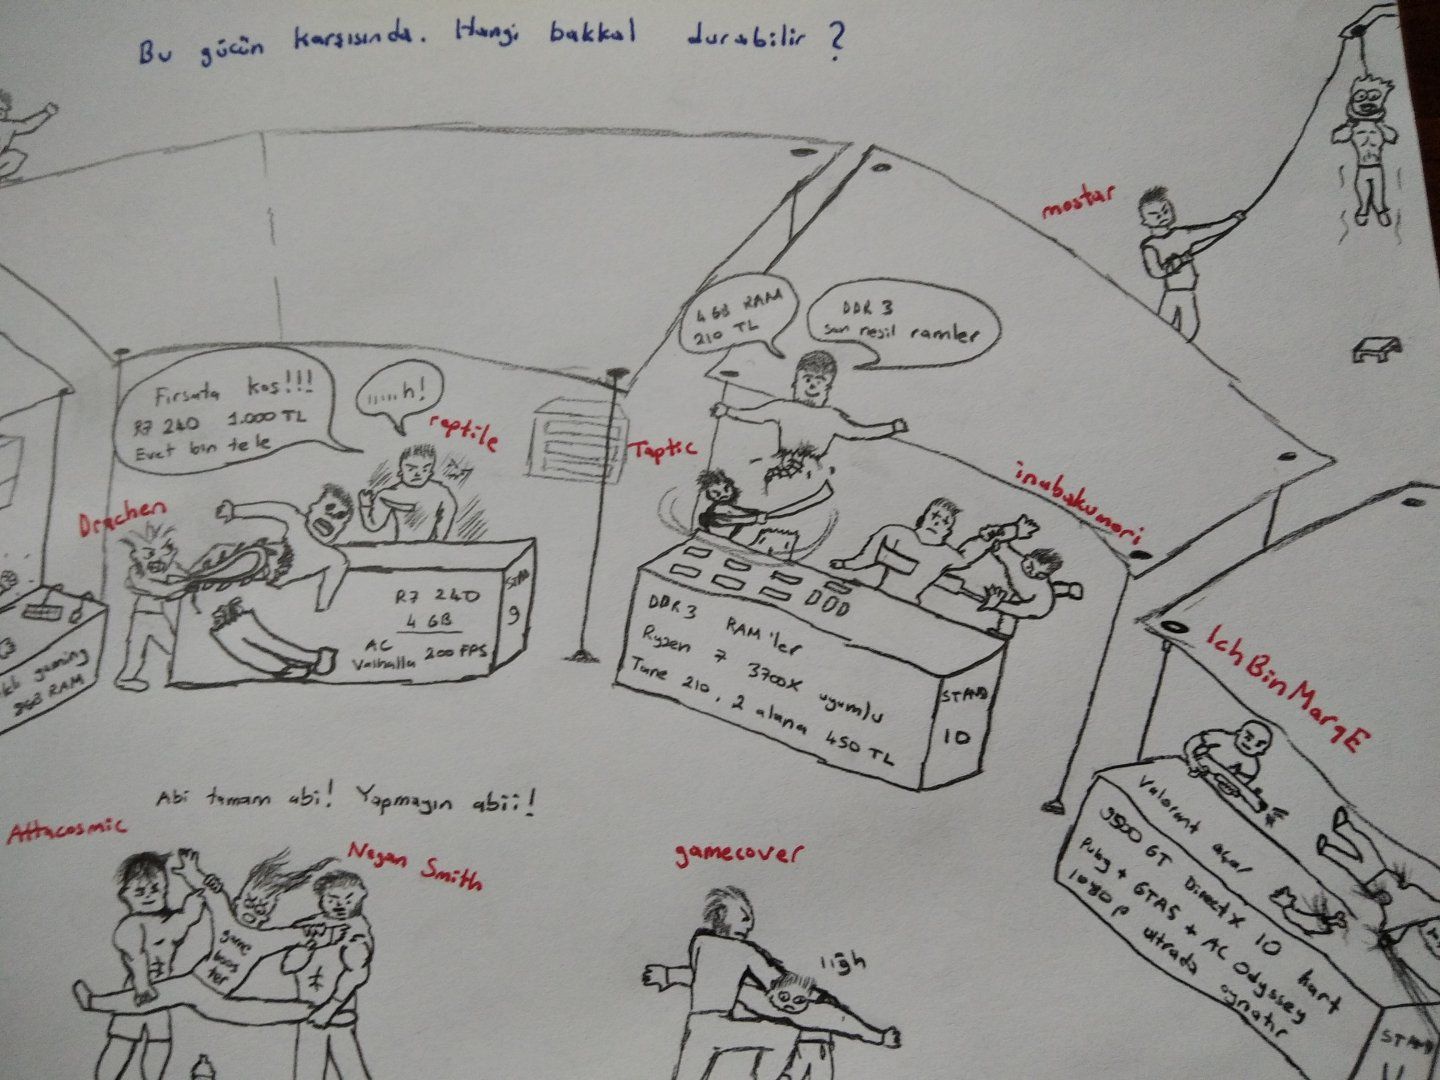 Bu gücün karşısında. Hangi bakkal durabilir?
mostar
4 GB RAM
210 TL
DDR 3
son nesil ramler
Fırsata koş!!!
R7 240 1.000 TL
Evet bin tele
......h!
raptile
Taptic
Drachen
inubakumori
R7 240
4 GB
AC
Valhalla 200 FPS
STAND
9
DDR3 RAM'ler
Ryzen 7 3700X uyumlu
Tane 210, 2 alana 450 TL
STAND
10
gaming
RAM
IchBinMarqE
Valorant açar
9500 GT DirectX 10 kart
Pubg + GTA5 + AC Odyssey
1080p ultrada
oynatır
STAND
Abi tamam abi! Yapmayın abii!
Attacosmic
Negan Smith
game
boos
ter
gamecover
ııgh